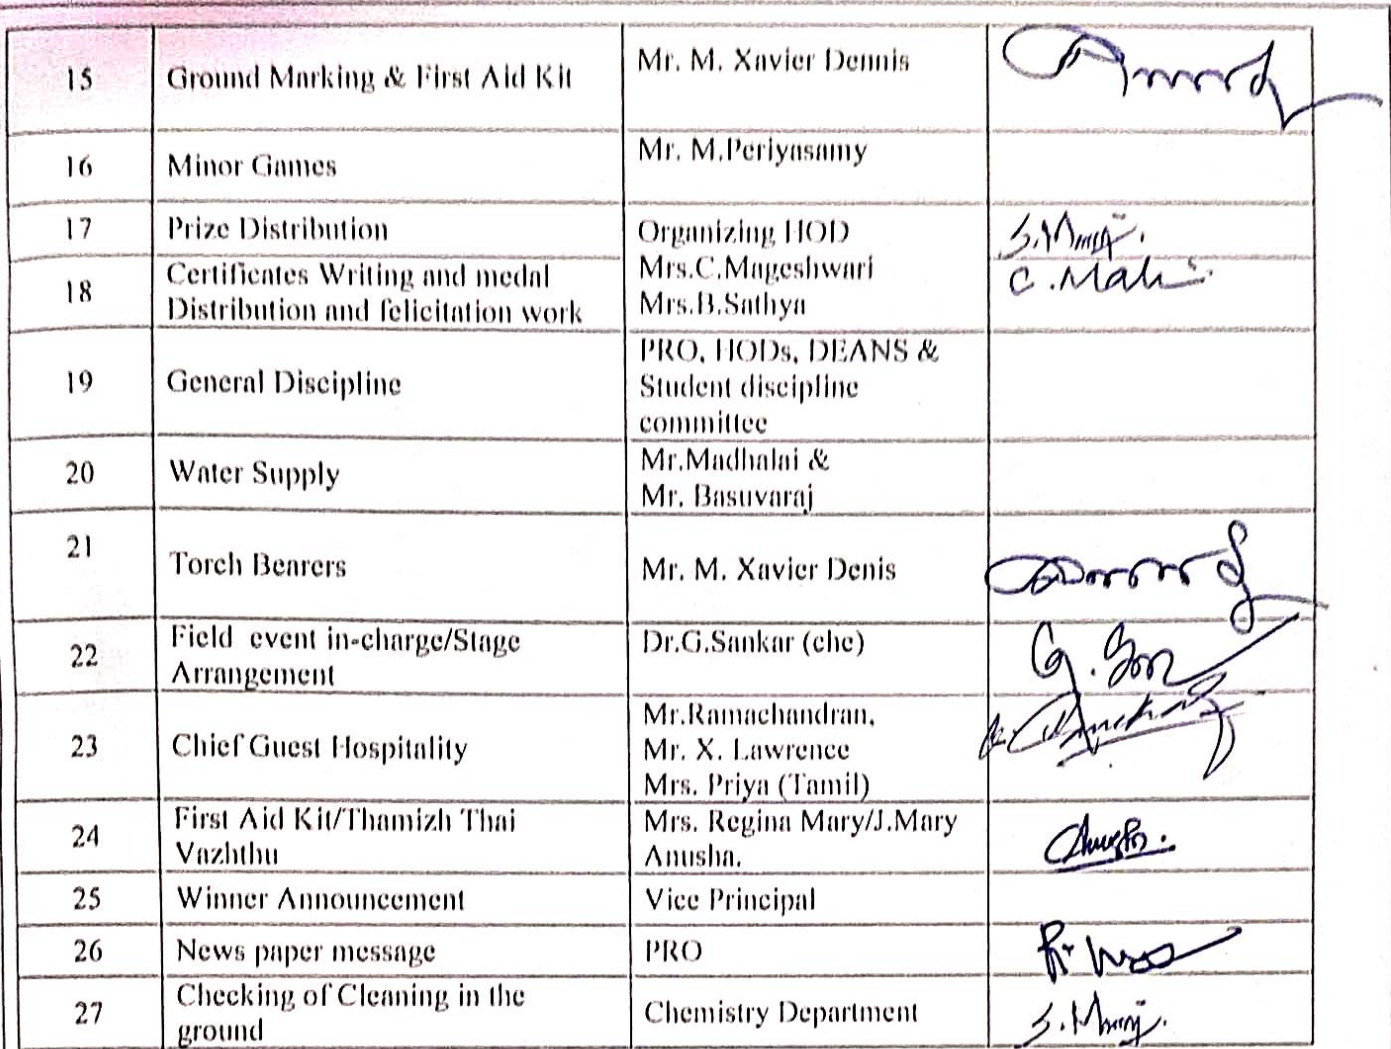 15 Ground Marking & First Aid Kit Mr. M. Xavier Dennis
16 Minor Games Mr. M.Periyasamy
17 Prize Distribution Organizing HOD
18 Certificates Writing and medal Mrs.C.Mageshwari
Distribution and felicitation work Mrs.B.Sathya
C. Mah
19 General Discipline PRO, HODs, DEANS &
Student discipline
committee
20 Water Supply Mr.Madhalai &
Mr. Basuvaraj
21 Torch Bearers Mr. M. Xavier Denis
22 Field event in-charge/Stage Dr.G.Sankar (che)
Arrangement
23 Chief Guest Hospitality Mr.Ramachandran,
Mr. X. Lawrence
Mrs. Priya (Tamil)
24 First Aid Kit/Thamizh Thai Mrs. Regina Mary/J.Mary
Vazhthu Anusha.
25 Winner Announcement Vice Principal
26 News paper message PRO
27 Checking of Cleaning in the Chemistry Department
ground